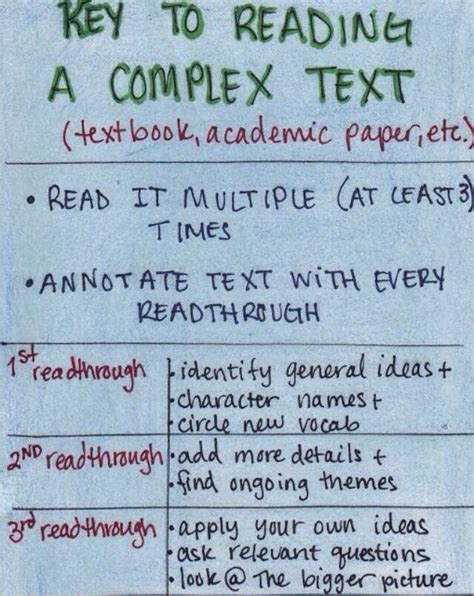 KEY TO READING
A COMPLEX TEXT
(textbook, academic paper, etc.)
• READ IT MULTIPLE (AT LEAST 3)
TIMES
• ANNOTATE TEXT WITH EVERY
READTHROUGH
1st readthrough
• identify general ideas +
• character names +
• circle new vocab
2ND readthrough
• add more details +
• find ongoing themes
3rd readthrough
• apply your own ideas
• ask relevant questions
• look @ The bigger picture